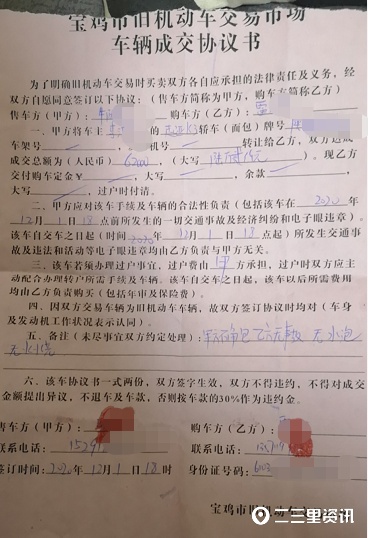 宝鸡市旧机动车交易市场
车辆成交协议书
为了明确旧机动车交易时买卖双方各自应承担的法律责任及义务，经
双方自愿同意签订以下协议：（售车方简称为甲方，购车方简称乙方）
售车方（甲方）： 购车方（乙方）：
一、甲方将车主 的 轿车（面包）牌号
车架号 机号 转让给乙方，双方达成
成交总额为（人民币） （大写 ）。现乙方
交付购车定金￥ ，大写 ，余款 ，
大写 ，过户时付清。
二、甲方应对该车手续及车辆的合法性负责（包括该车在 2020 年
12月1日18点前所发生的一切交通事故及经济纠纷和电子眼违章）。
该车自交车之日起（时间 2020 年 12 月 1 日 18 点起）所发生交通事
故及违法和活动等电子眼违章均由乙方负责与甲方无关。
三、该车若须办理过户事宜，过户费由 甲 方承担，过户时双方应主
动配合办理转户所需手续及车辆。该车自交车之日起，该车以后所需费用
均由乙方负责购买（包括年审及保险费）。
四、因双方交易车辆为旧机动车车辆，故双方签订协议时均对（车身
及发动机工作状况表示认同）。
五、备注（未尽事宜双方约定处理）： 无水泡
无火烧
六、该车协议书一式两份，双方签字生效，双方不得违约，不得对成交
金额提出异议，不退车及车款，否则按车款的30%作为违约金。
售车方（甲方）： 购车方（乙方）：
联系电话：1529 联系电话：
签订时间：2020年12月1日18时 身份证号码：
宝鸡市旧机动车
二三里资讯